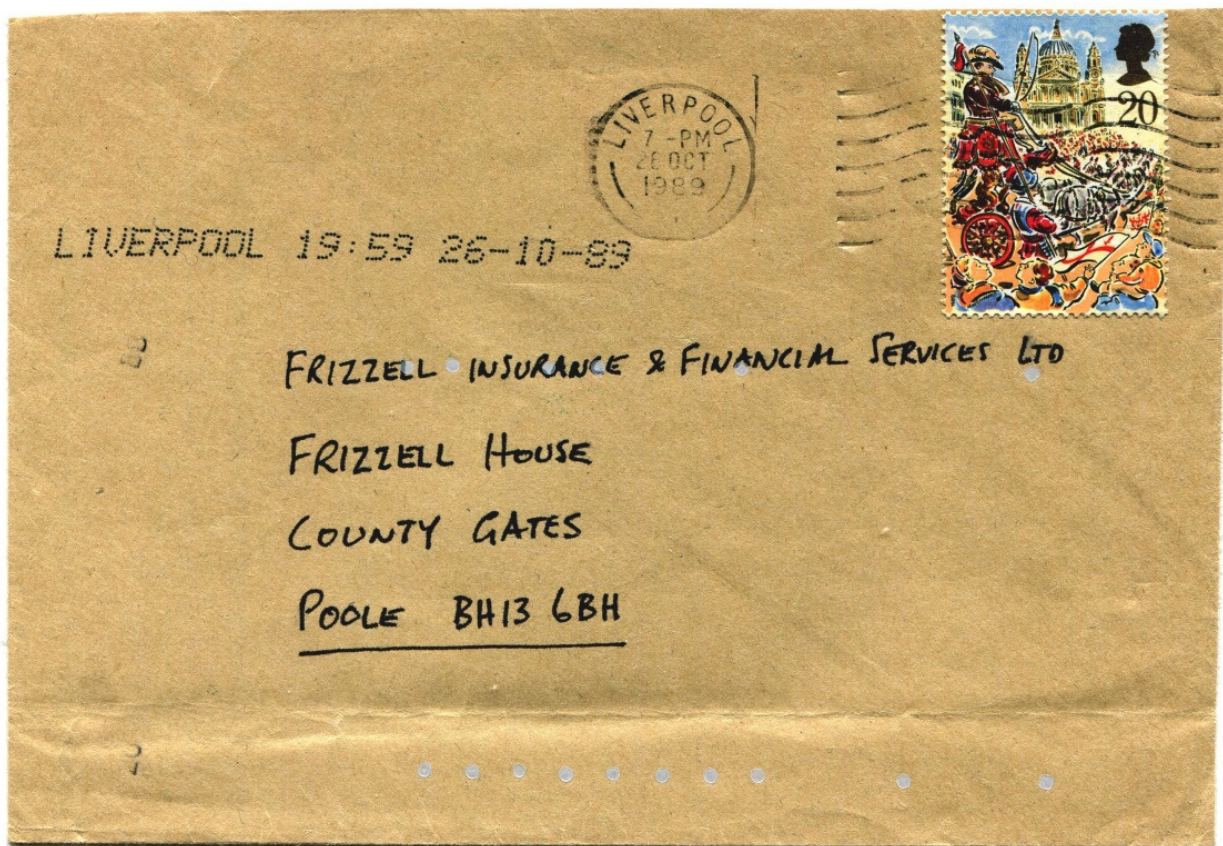 LIVERPOOL
7-PM
26 OCT
1989
20
LIVERPOOL 19:59 26-10-89
FRIZZELL INSURANCE & FINANCIAL SERVICES LTD
FRIZZELL HOUSE
COUNTY GATES
POOLE BH13 6BH